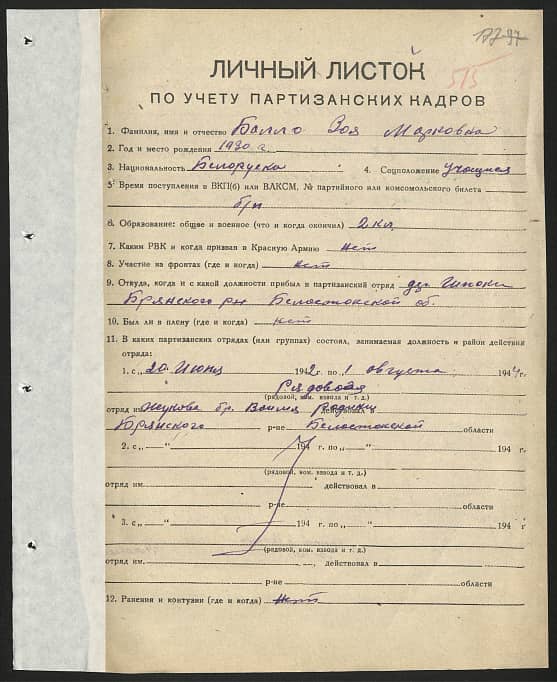 ЛИЧНЫЙ ЛИСТОК
515
ПО УЧЕТУ ПАРТИЗАНСКИХ КАДРОВ
1. Фамилия, имя и отчество Балло Зоя Марковна
2. Год и место рождения 1930 г.
3. Национальность Белоруска 4. Соцположение учащаяся
5. Время поступления в ВКП(б) или ВЛКСМ, № партийного или комсомольского билета
б/п
6. Образование: общее и военное (что и когда окончил) 2 кл.
7. Каким РВК и когда призван в Красную Армию нет
8. Участие на фронтах (где и когда) нет
9. Откуда, когда и с какой должности прибыл в партизанский отряд
Брянского р-н Белостокской об.
10. Был ли в плену (где и когда) нет
11. В каких партизанских отрядах (или группах) состоял, занимаемая должность и район действия
отряда:
1. с „20 Июня 1942 г. по „1 августа 1944 г.
Рядовая
(рядовой, ком. взвода и т. д.)
отряд им. Жукова бр. За действовал в Родину
Брянского р-не Белостокской области
2. с „—" 194 г. по „—" 194 г.
(рядовой, ком. взвода и т. д.)
отряд им. действовал в
р-не области
3. с „—" 194 г. по „—" 194 г.
(рядовой, ком. взвода и т. д.)
отряд им. действовал в
р-не области
12. Ранения и контузии (где и когда) нет